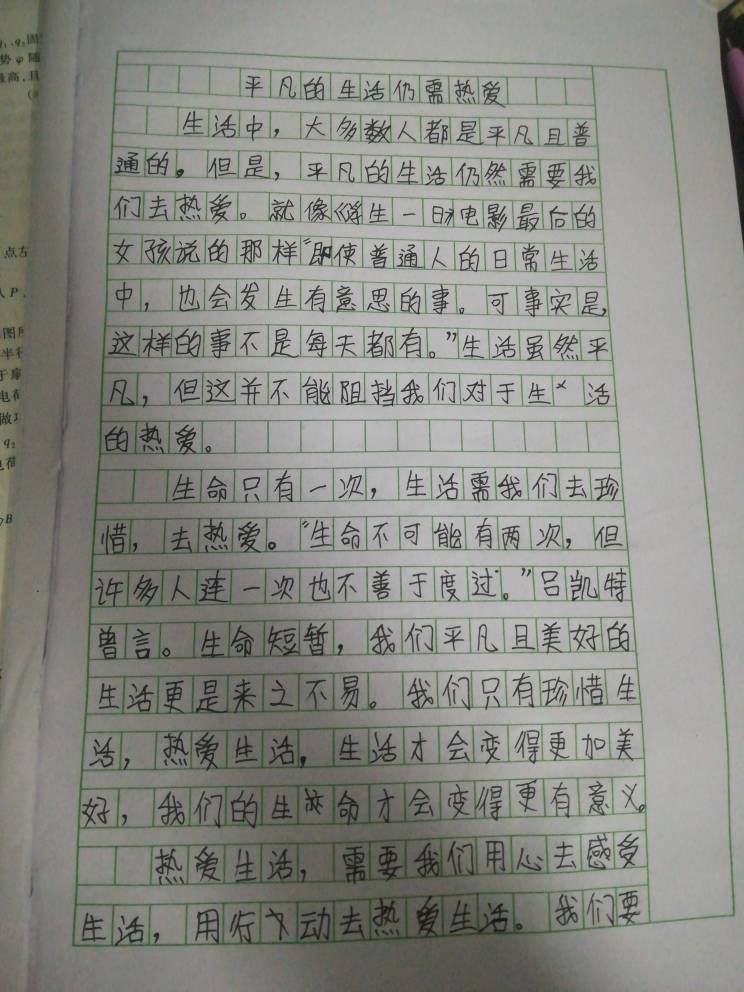 平凡的生活仍需热爱
生活中，大多数人都是平凡且普
通的。但是，平凡的生活仍然需要我
们去热爱。就像《浮生一日》电影最后的
女孩说的那样“即使普通人的日常生活
中，也会发生有意思的事。可事实是，
这样的事不是每天都有。”生活虽然平
凡，但这并不能阻挡我们对于生活
的热爱。
生命只有一次，生活需我们去珍
惜，去热爱。“生命不可能有两次，但
许多人连一次也不善于度过。”吕凯特
曾言。生命短暂，我们平凡且美好的
生活更是来之不易。我们只有珍惜生
活，热爱生活，生活才会变得更加美
好，我们的生命才会变得更有意义。
热爱生活，需要我们用心去感受
生活，用行动去热爱生活。我们要